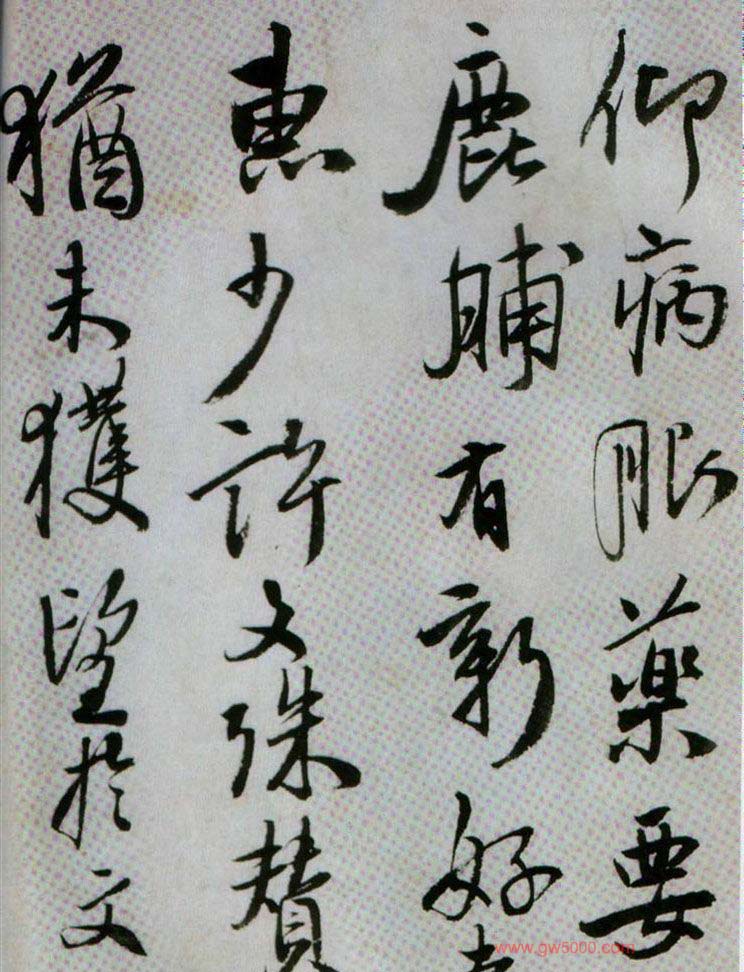 仰病服药要
鹿脯有新好
惠少許文殊贊
猶未獲望於文
www.gw5000.com